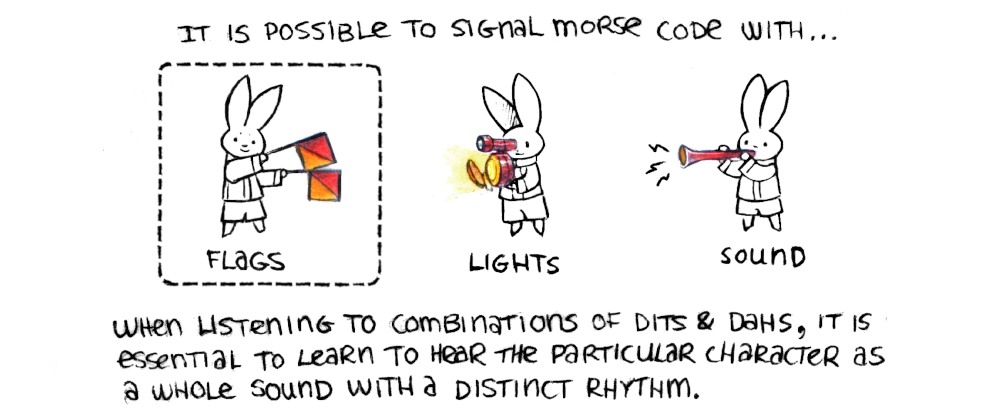 IT IS POSSIBLE TO SIGNAL MORSE CODE WITH...
FLAGS
LIGHTS
SOUND
WHEN LISTENING TO COMBINATIONS OF DITS & DAHS, IT IS
ESSENTIAL TO LEARN TO HEAR THE PARTICULAR CHARACTER AS
A WHOLE SOUND WITH A DISTINCT RHYTHM.